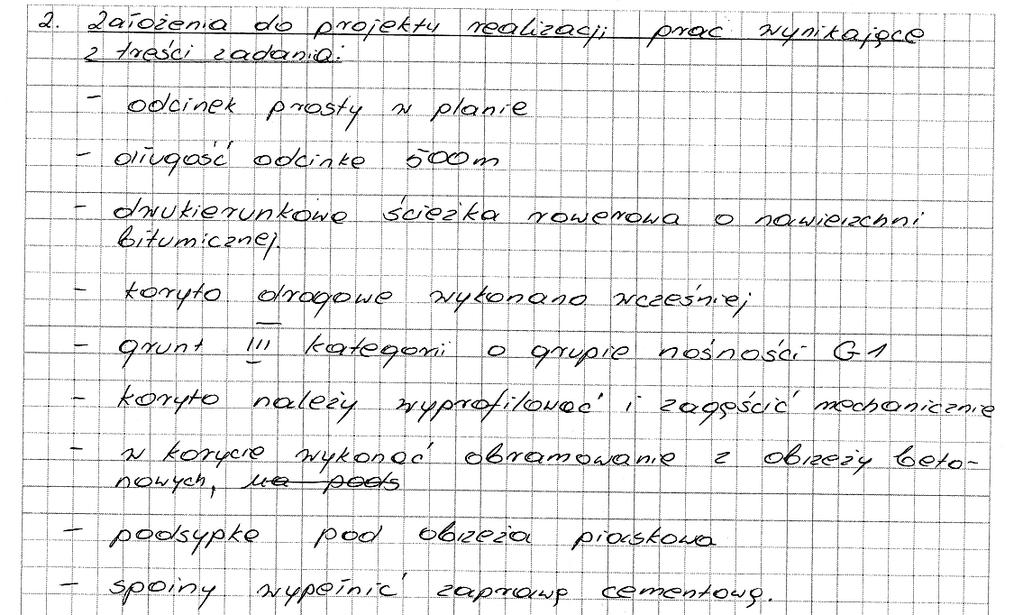 2. Założenia do projektu realizacji prac wynikające
z treści zadania:
- odcinek prosty w planie
- długość odcinka 500m
- dwukierunkowa ścieżka rowerowa o nawierzchni
bitumicznej.
- koryto drogowe wykonano wcześniej
- grunt III kategorii o grupie nośności G1
- koryto należy wyprofilować i zagęścić mechanicznie
- w korycie wykonać obramowanie z obrzeży beto-
nowych, na pods
- podsypka pod obrzeża piaskowa
- spoiny wypełnić zaprawą cementową.